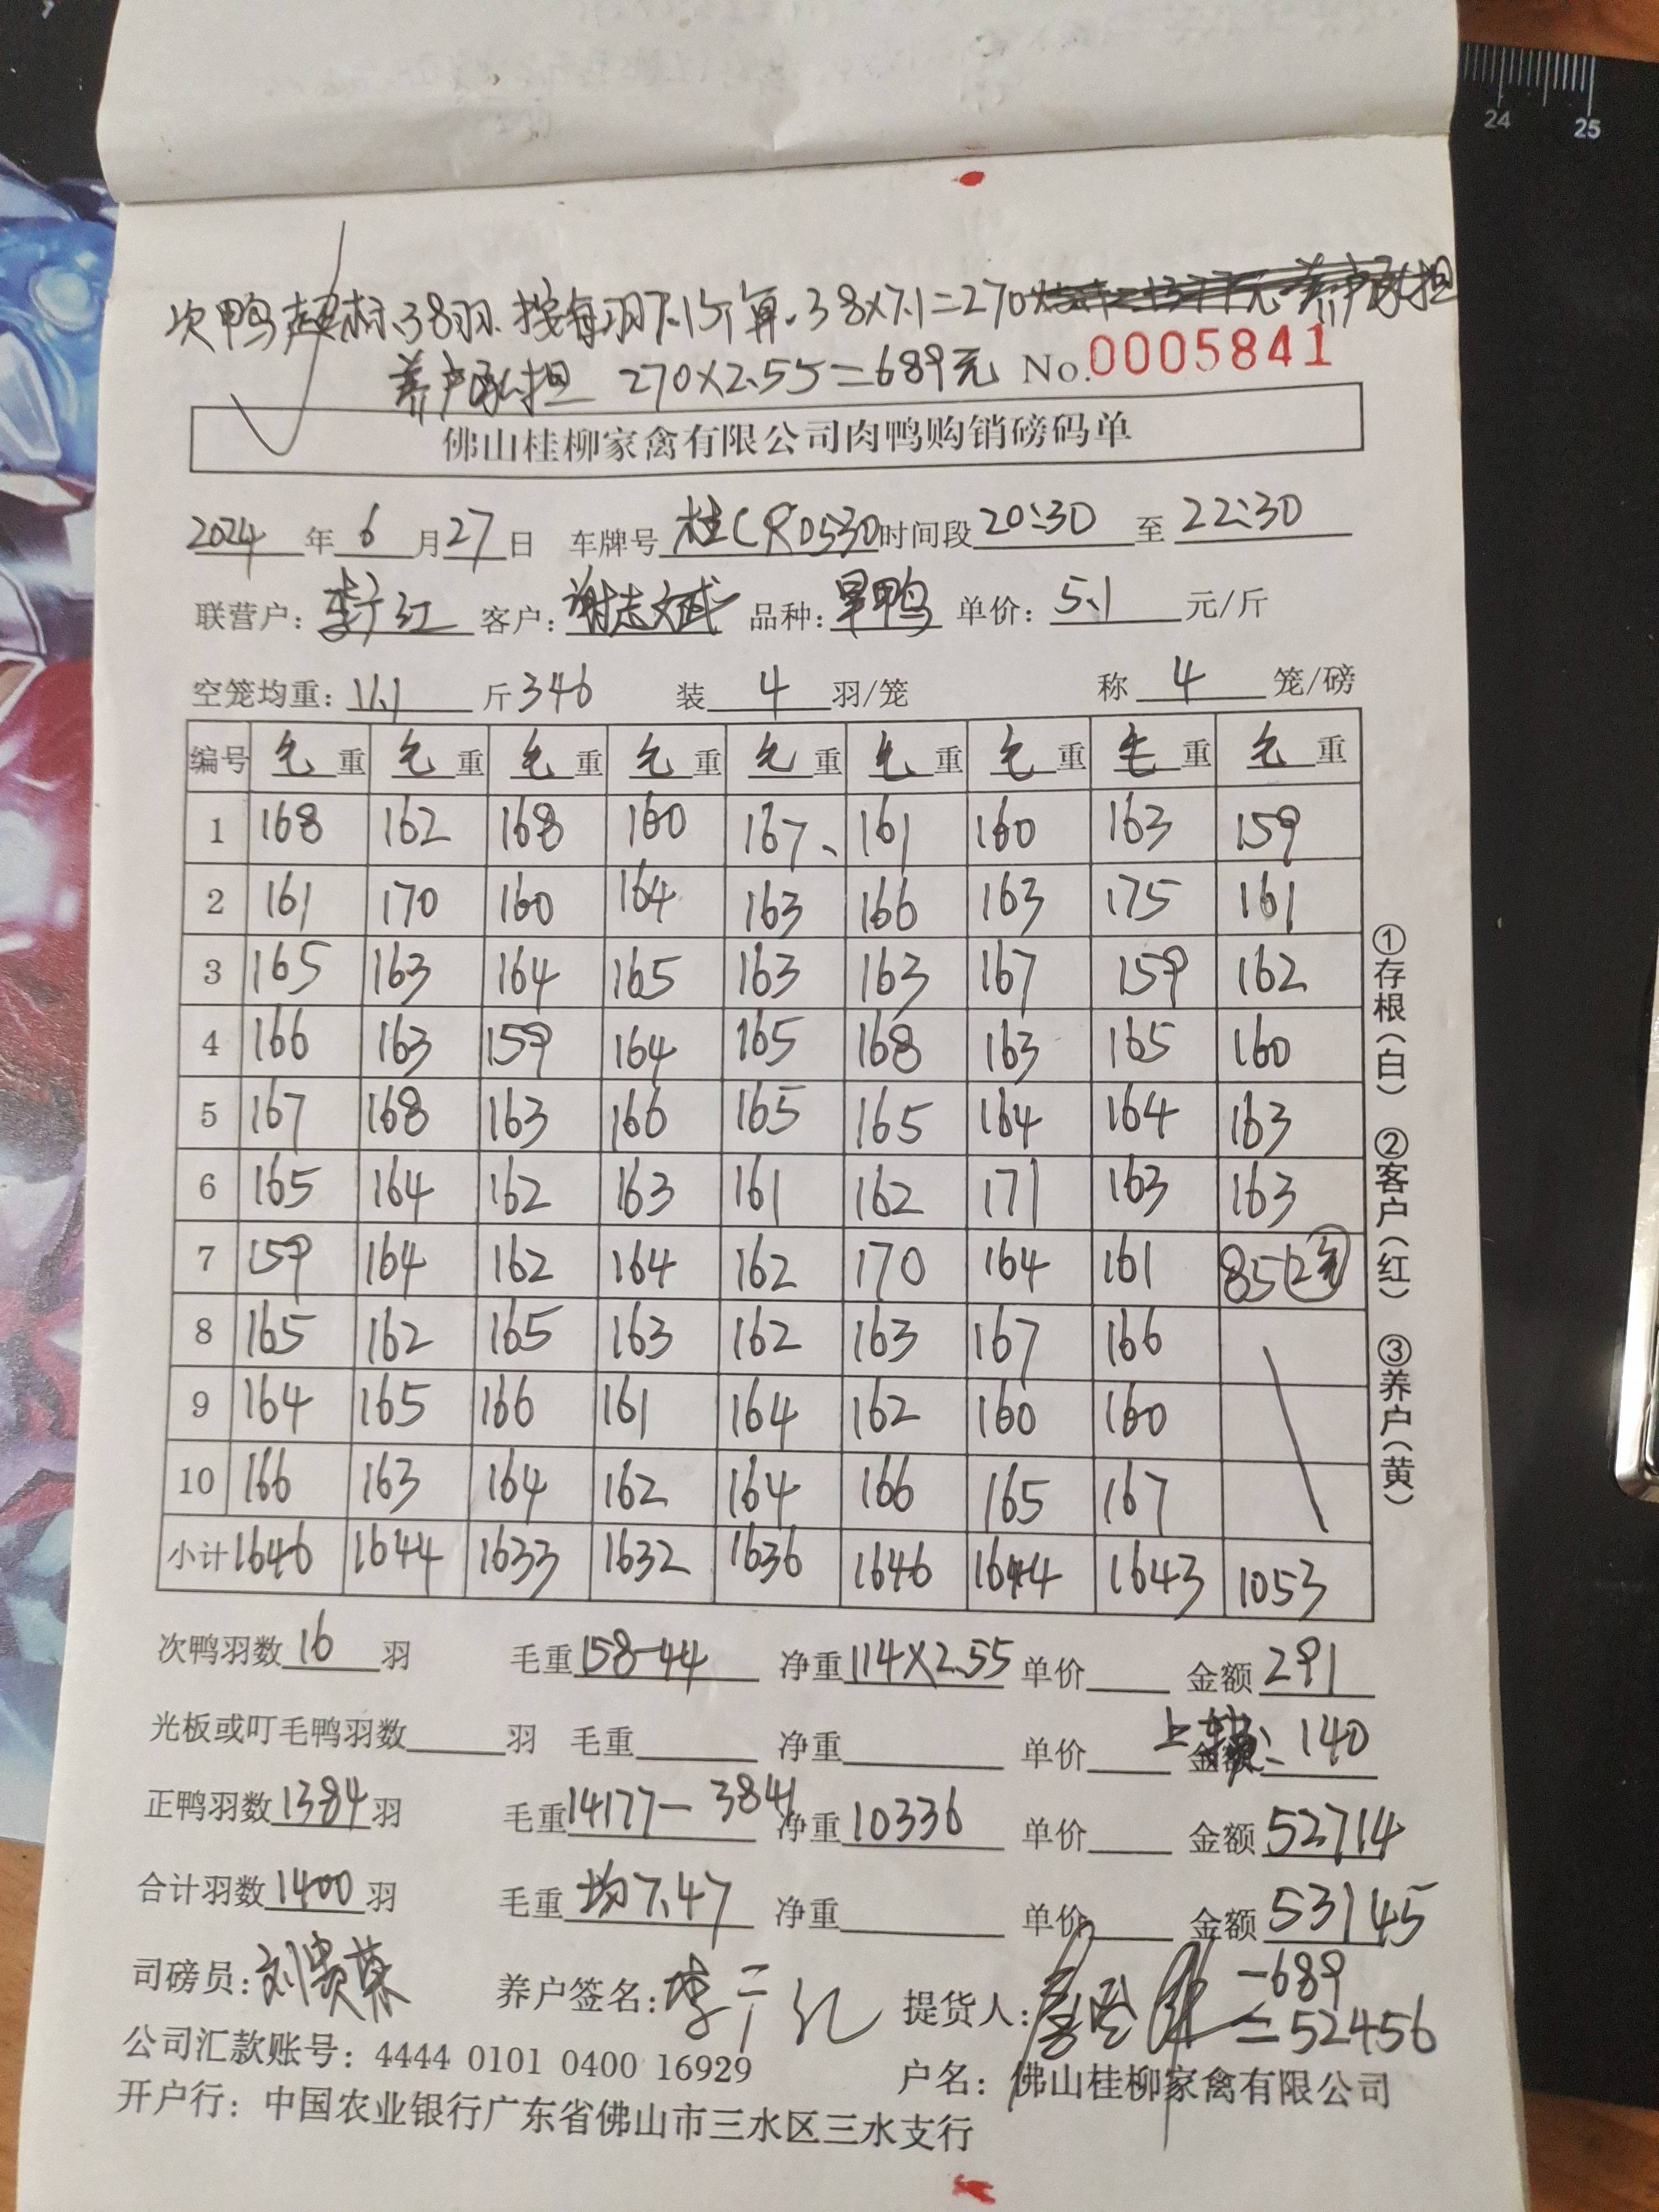 24 25
次鸭超标38羽.按每羽7.1斤算.38×7.1=270 养户承担
养户承担 270×2.55=689元 No.0005841
佛山桂柳家禽有限公司肉鸭购销磅码单
2024年6月27日 车牌号桂CR0530时间段20:30至22:30
联营户:李广红 客户:谢志斌 品种:旱鸭 单价:5.1元/斤
空笼均重:11.1斤346 装4羽/笼 称4笼/磅
编号 毛重 毛重 毛重 毛重 毛重 毛重 毛重 毛重 毛重
1 168 162 168 160 167、 161 160 163 159
2 161 170 160 164 163 166 163 175 161
3 165 163 164 165 163 163 167 159 162
4 166 163 159 164 165 168 163 165 160
5 167 168 163 166 165 165 164 164 163
6 165 164 162 163 161 162 171 163 163
7 159 164 162 164 162 170 164 161 85(2毛)
8 165 162 165 163 162 163 167 166
9 164 165 166 161 164 162 160 160
10 166 163 164 162 164 166 165 167
小计 1646 1644 1633 1632 1636 1646 1644 1643 1053
次鸭羽数16羽 毛重158-44 净重114×2.55 单价 金额291
光板或叮毛鸭羽数 羽 毛重 净重 单价 金额 140
正鸭羽数1384羽 毛重14177-3841 净重10336 单价 金额52714
合计羽数1400羽 毛重均7.47 净重 单价 金额53145
司磅员:刘贵荣 养户签名:李广红 提货人: -689
=52456
公司汇款账号:4444 0101 0400 16929 户名:佛山桂柳家禽有限公司
开户行:中国农业银行广东省佛山市三水区三水支行
①存根(白) ②客户(红) ③养户(黄)